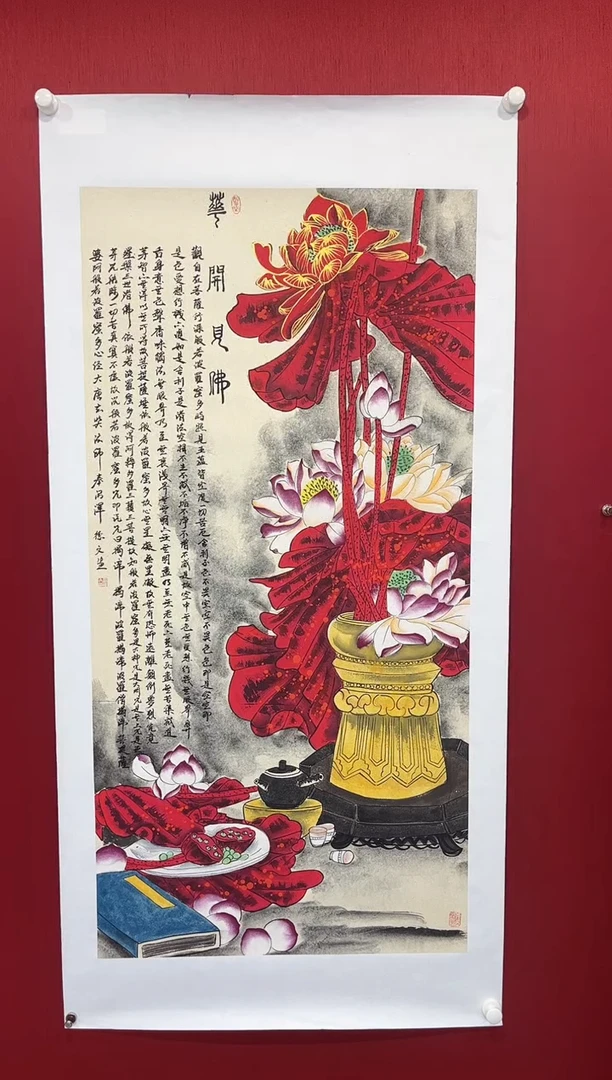 華開見佛
觀自在菩薩行深般若波羅蜜多時照見五蘊皆空度一切苦厄舍利子色不異空空不異色色即是空空即
是色受想行識亦復如是舍利子是諸法空相不生不滅不垢不淨不增不減是故空中無色無受想行識無眼耳鼻
舌身意無色聲香味觸法無眼界乃至無意識界無無明亦無無明盡乃至無老死亦無老死盡無苦集滅道
無智亦無得以無所得故菩提薩埵依般若波羅蜜多故心無罣礙無罣礙故無有恐怖遠離顛倒夢想究竟
涅槃三世諸佛依般若波羅蜜多故得阿耨多羅三藐三菩提故知般若波羅蜜多是大神咒是大明咒是無上咒是無
等等咒能除一切苦真實不虛故說般若波羅蜜多咒即說咒曰揭諦揭諦波羅揭諦波羅僧揭諦菩提薩
婆訶般若波羅蜜多心經大唐玄奘法師奉詔譯